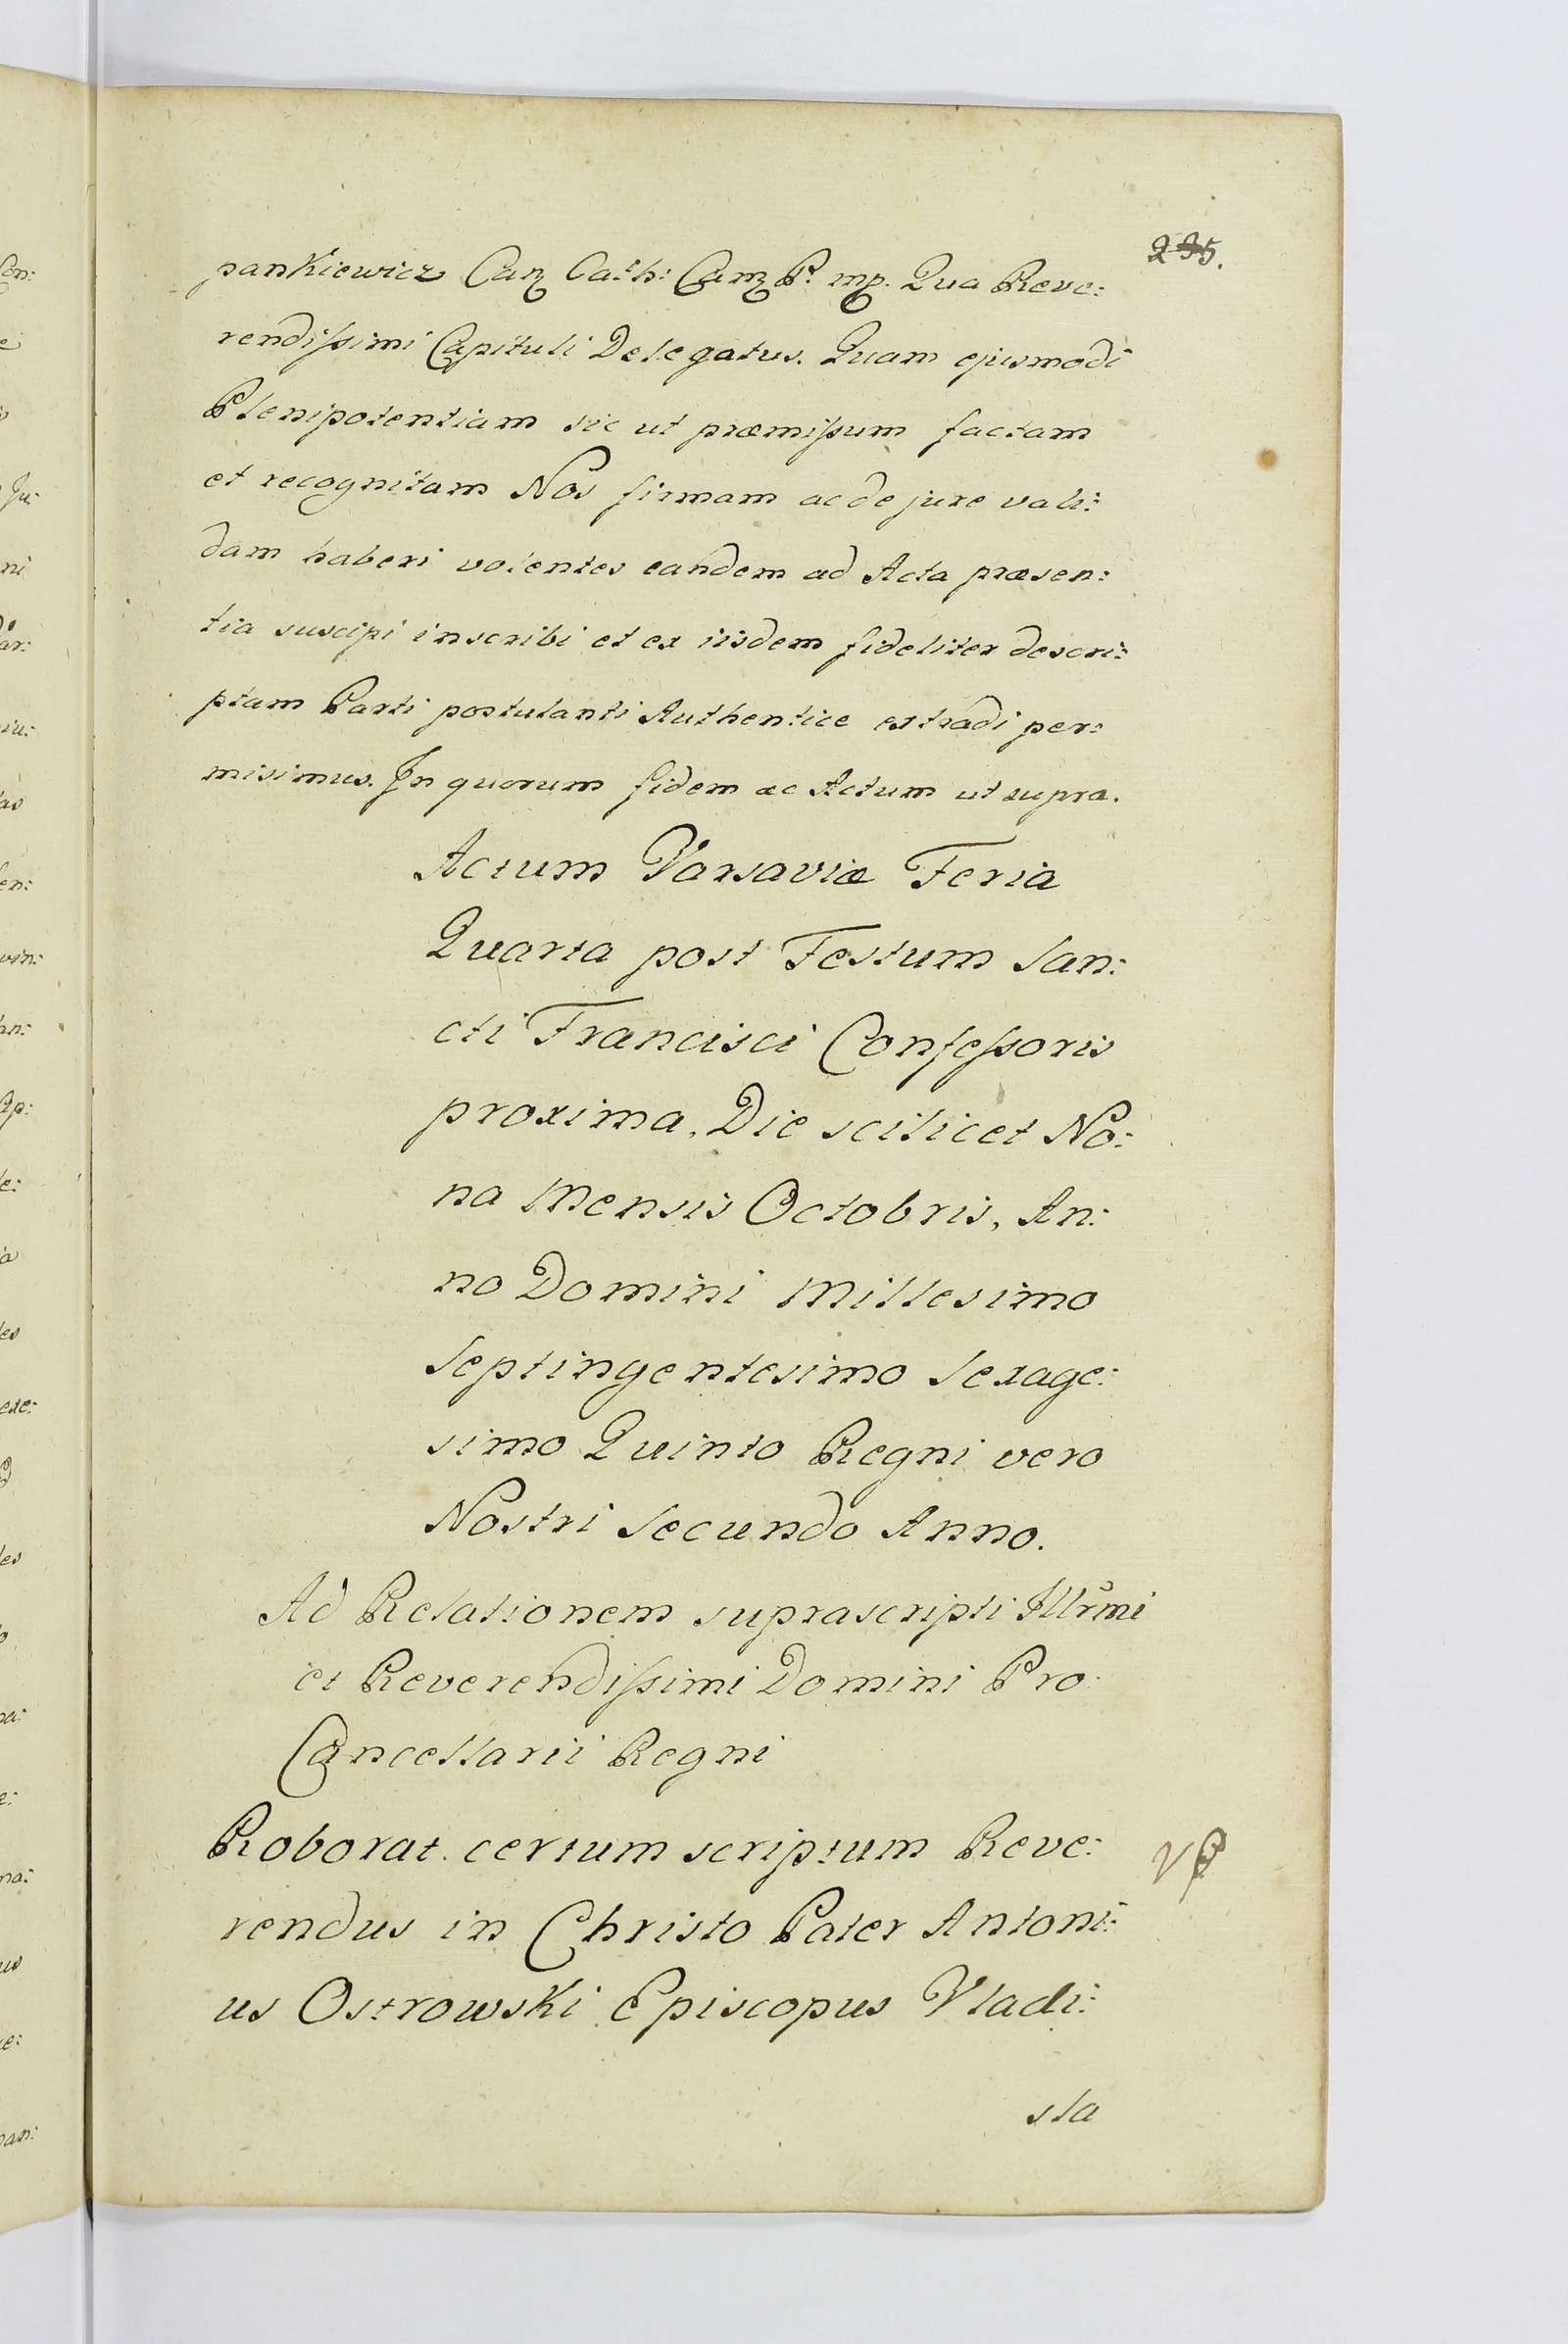 235.
pankiewicz Can Cath: Cam P. mp. Qua Reve:
rendissimi Capituli Delegatus. Quam ejusmodi
Plenipotentiam sic ut præmissum factam
et recognitam Nos firmam ac de jure vali:
dam haberi volentes eandem ad Acta præsen:
tia suscipi inscribi et ex iisdem fideliter descri:
ptam Parti postulanti Authentice extradi per:
misimus. In quorum fidem ac Actum ut supra.
Actum Varsaviæ Feria
Quarta post Festum San:
cti Francisci Confessoris
proxima, Die scilicet No:
na Mensis Octobris, An:
no Domini Millesimo
Septingentesimo Sexage:
simo Quinto Regni vero
Nostri Secundo Anno.
Ad Relationem suprascripti Illrmi
et Reverendissimi Domini Pro
Cancellarii Regni
Roborat. certum scriptum Reve:
rendus in Christo Pater Antoni:
us Ostrowski Episcopus Vladi:
sla